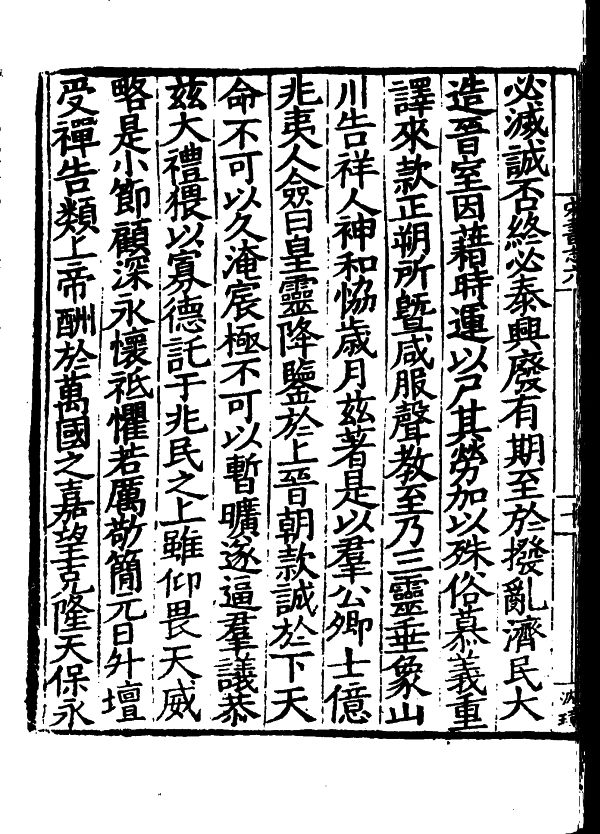 宋書志六
必滅誠否終必泰興廢有期至於撥亂濟民大
造晉室因藉時運以尸其勞加以殊俗慕義重
譯來款正朔所曁咸服聲教至乃三靈垂象山
川告祥人神和恊歲月茲著是以羣公卿士億
兆夷人僉曰皇靈降鑒於上晉朝款誠於下天
命不可以久淹宸極不可以暫曠遂逼羣議恭
茲大禮猥以寡德託于兆民之上雖仰畏天威
略是小節顧深永懷祗懼若厲敬簡元日升壇
受禪告類上帝酬於萬國之嘉望克隆天保永